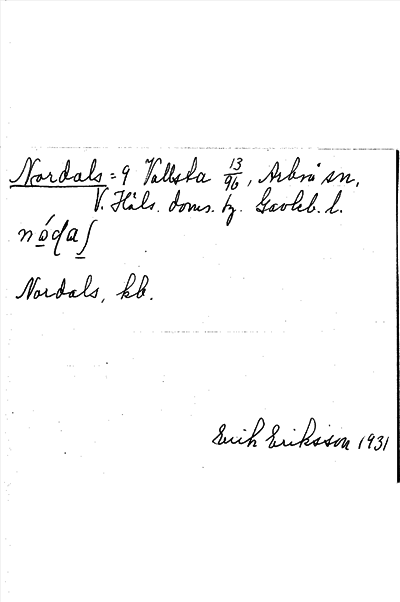 Nordals = 9 Vallsta 13/96, Arbrå sn,
V. Häls. doms. hg. Gävleb. l.
nó̲ḍa̲ʃ
Nordals, kb.
Erik Eriksson 1931